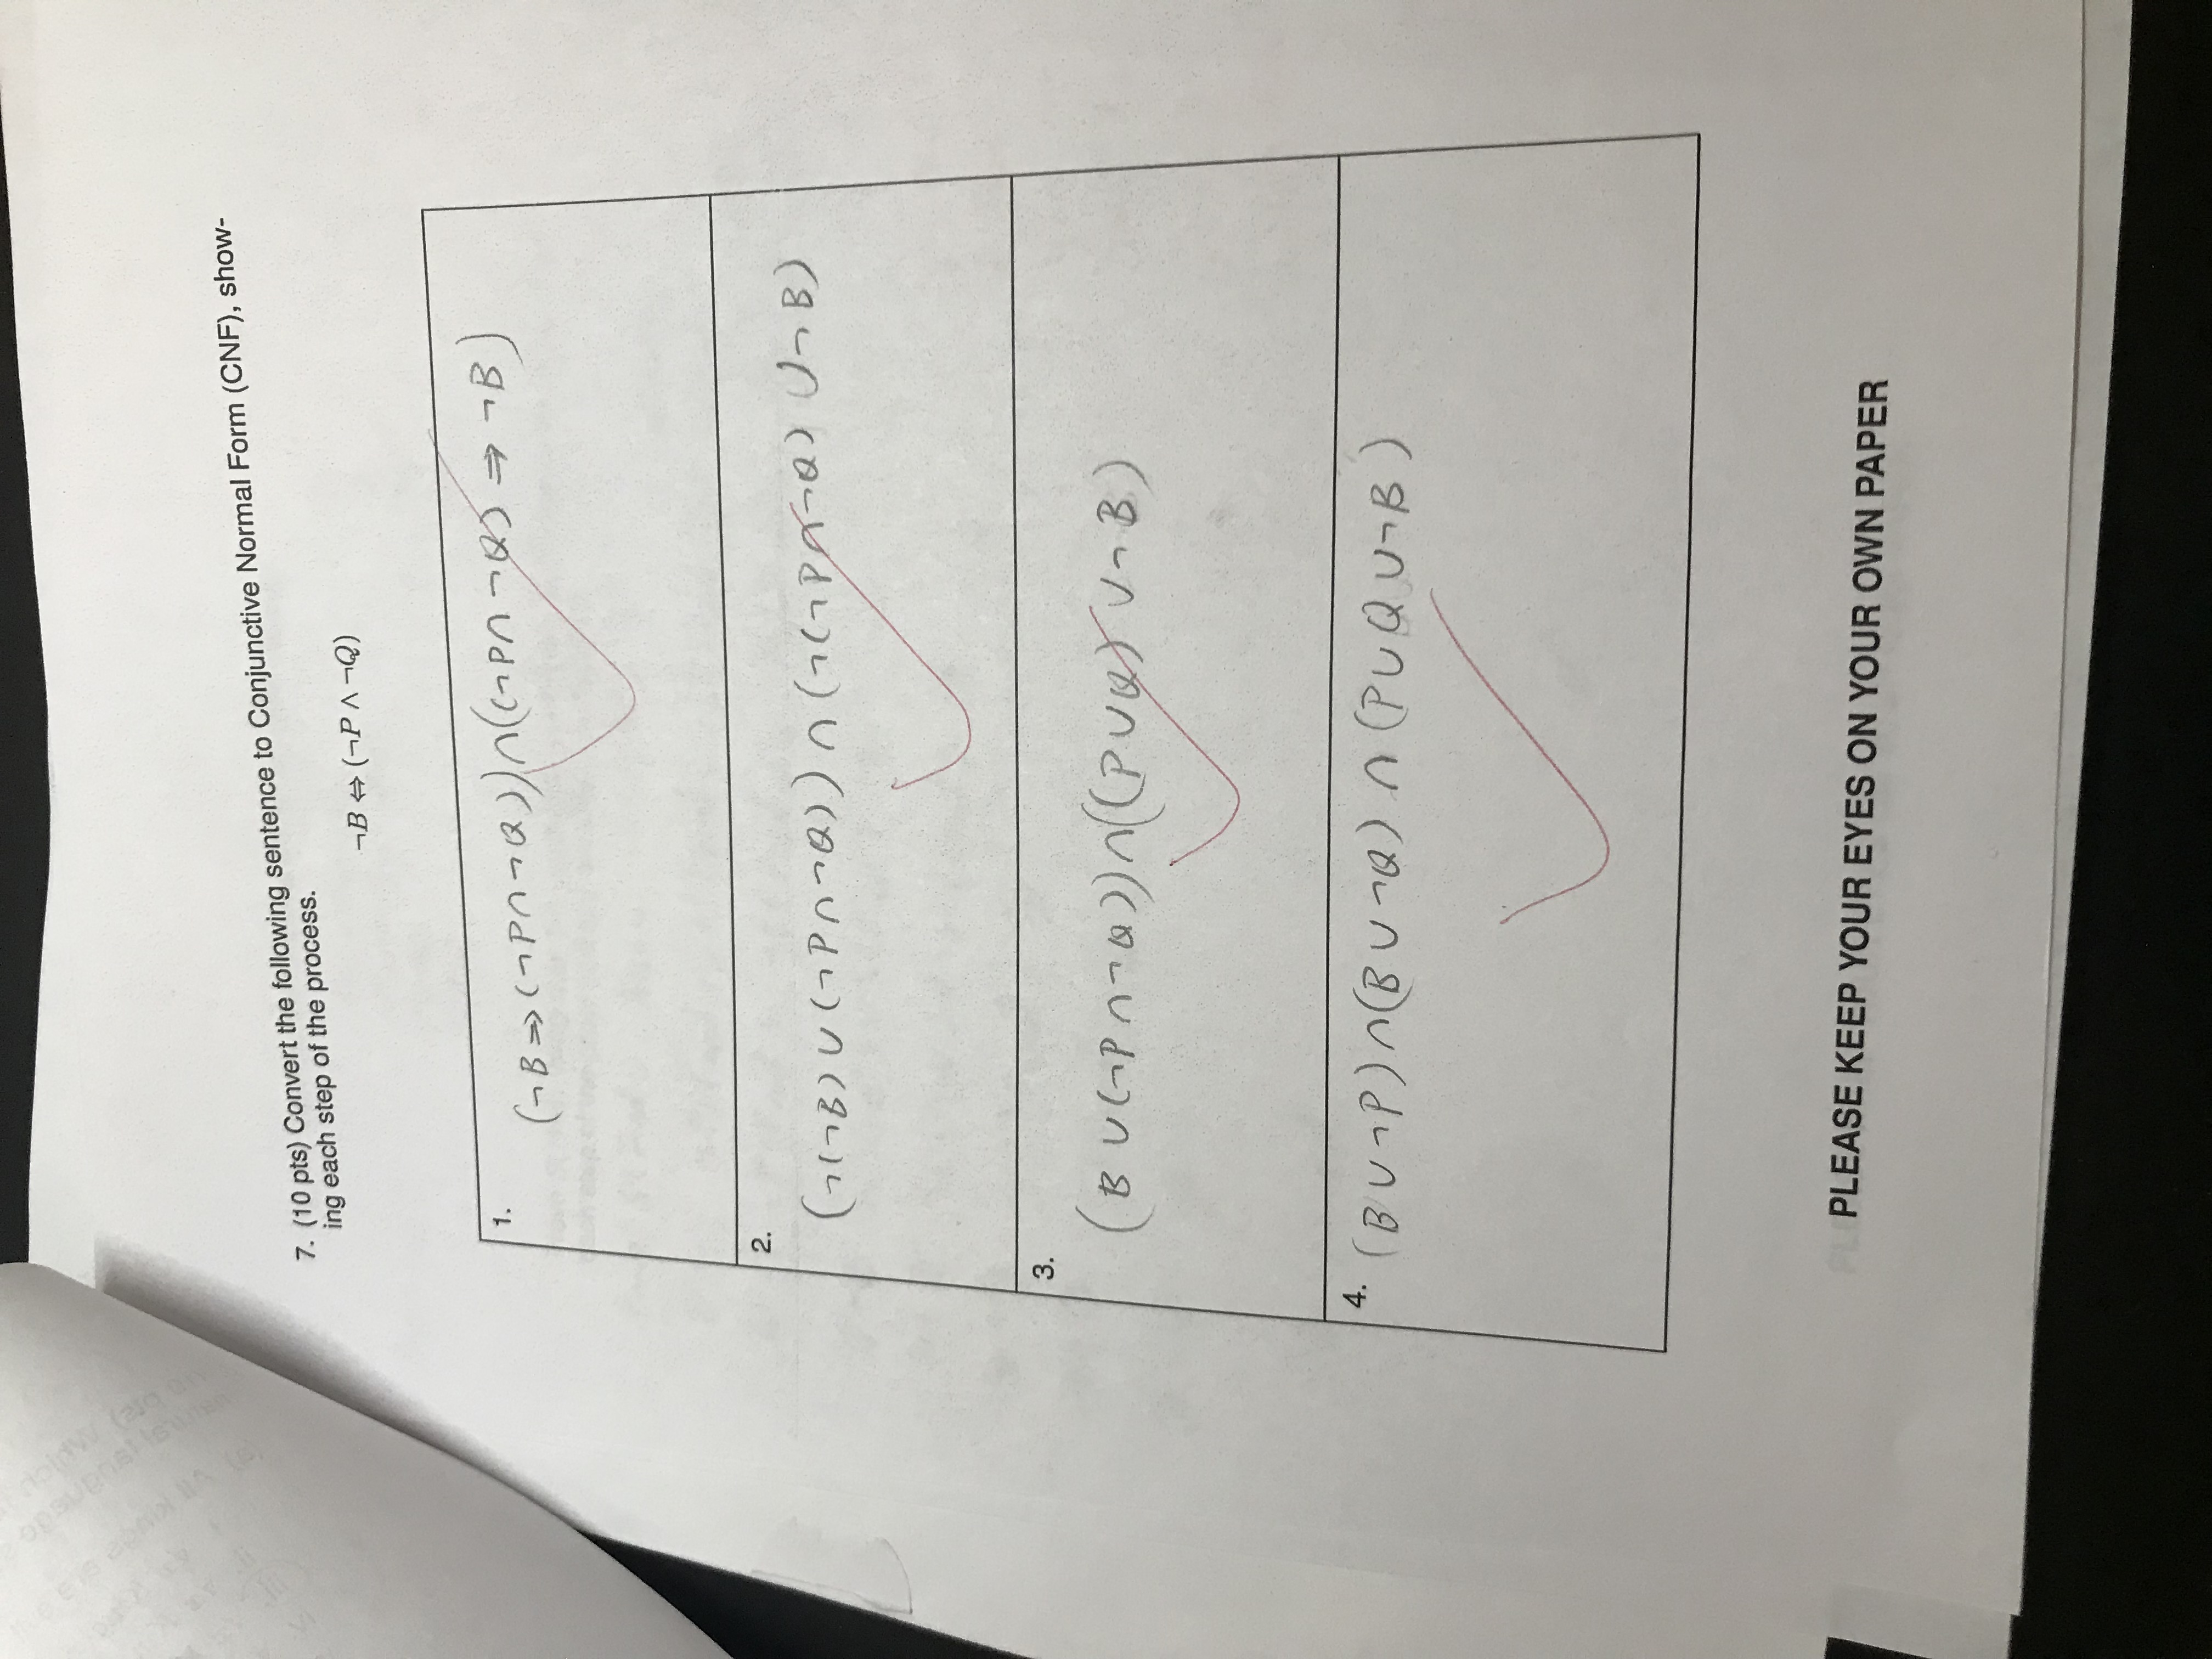 7. (10 pts) Convert the following sentence to Conjunctive Normal Form (CNF), show-
ing each step of the process.
¬B ⇔ (¬P ∧ ¬Q)
1.
(¬B ⇒ (¬P ∩ ¬Q)) ∩ ((¬P ∩ ¬Q) ⇒ ¬B)
2.
(¬(¬B) ∪ (¬P ∩ ¬Q)) ∩ (¬(¬P ∩ ¬Q) ∪ ¬B)
3.
(B ∪ (¬P ∩ ¬Q)) ∩ ((P ∪ Q) ∪ ¬B)
4. (B ∪ ¬P) ∩ (B ∪ ¬Q) ∩ (P ∪ Q ∪ ¬B)
PLEASE KEEP YOUR EYES ON YOUR OWN PAPER